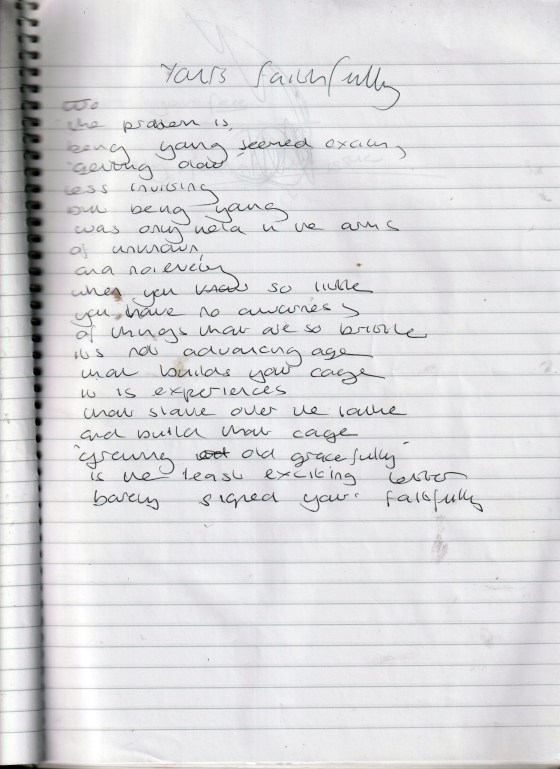 Yours faithfully
the problem is,
being young seemed exciting
getting old
less inviting
but being young
was only held in the arms
of unknown
and
when you know so little
you have no awarness
of things that are so brittle
it's not advancing age
that builds your cage
it is experiences
that slave over the lathe
and build that cage
"growing old gracefully"
is the least exciting letter
barely signed yours faithfully